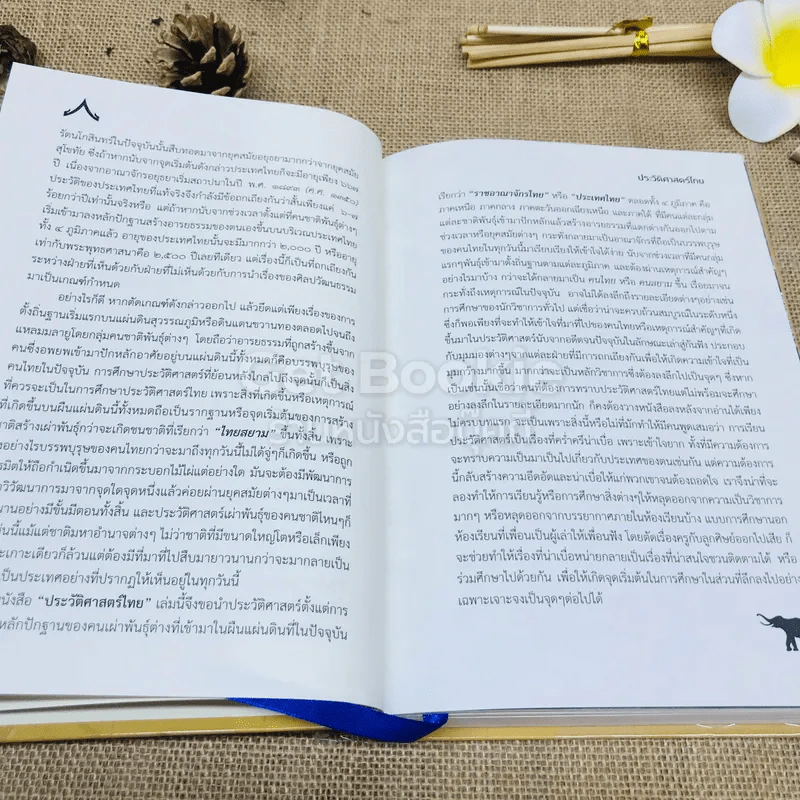 รัตนโกสินทร์ในปัจจุบันนั้นสืบทอดมาจากยุคสมัยอยุธยามากกว่าจากยุคสมัย
สุโขทัย ซึ่งถ้าหากนับจากจุดเริ่มต้นดังกล่าวประเทศไทยก็จะมีอายุเพียง ๖๖๗
ปี เนื่องจากอาณาจักรอยุธยาเริ่มสถาปนาในปี พ.ศ. ๑๘๙๓ (ค.ศ. ๑๓๕๐)
ประวัติของประเทศไทยที่แท้จริงจึงกำลังมีข้อถกเถียงกันว่าสั้นเพียงแค่ ๖-๗
ร้อยกว่าปีเท่านั้นจริงหรือ แต่ถ้าหากนับจากช่วงเวลาตั้งแต่ที่คนชาติพันธุ์ต่างๆ
เริ่มเข้ามาลงหลักปักฐานสร้างอารยธรรมของตนเองขึ้นบนบริเวณประเทศไทย
ทั้ง ๔ ภูมิภาคแล้ว อายุของประเทศไทยนั้นจะมีมากกว่า ๒,๐๐๐ ปี หรืออายุ
เท่ากับพระพุทธศาสนาคือ ๒,๕๐๐ ปีเลยทีเดียว แต่เรื่องนี้ก็เป็นที่ถกเถียงกัน
ระหว่างฝ่ายที่เห็นด้วยกับฝ่ายที่ไม่เห็นด้วยกับการนำเรื่องของศิลปวัฒนธรรม
มาเป็นเกณฑ์กำหนด
อย่างไรก็ดี หากตัดเกณฑ์ดังกล่าวออกไป แล้วยึดแต่เพียงเรื่องของการ
ตั้งถิ่นฐานเริ่มแรกบนแผ่นดินสุวรรณภูมิหรือดินแดนขวานทองตลอดไปจนถึง
แหลมมลายูโดยกลุ่มคนชาติพันธุ์ต่างๆ โดยถือว่าอารยธรรมที่ถูกสร้างขึ้นจาก
คนซึ่งอพยพเข้ามาปักหลักอาศัยอยู่บนแผ่นดินนี้ทั้งหมดก็คือบรรพบุรุษของ
คนไทยในปัจจุบัน การศึกษาประวัติศาสตร์ที่ย้อนหลังเลยไปถึงจุดนั้นก็เป็นสิ่ง
ที่ควรจะเป็นในการศึกษาประวัติศาสตร์ไทย เพราะสิ่งที่เกิดขึ้นหรือเหตุการณ์
ที่เกิดขึ้นบนผืนแผ่นดินนี้ทั้งหมดถือเป็นรากฐานหรือจุดเริ่มต้นของการสร้าง
ชาติสร้างเผ่าพันธุ์กว่าจะเกิดชนชาติที่เรียกว่า “ไทยสยาม” ขึ้นทั้งสิ้น เพราะ
อย่างไรบรรพบุรุษของคนไทยกว่าจะมาถึงทุกวันนี้ไม่ได้จู่ๆก็เกิดขึ้น หรือถูก
รมิตให้ถือกำเนิดขึ้นมาจากกระบอกไม้ไผ่แต่อย่างใด มันจะต้องมีพัฒนาการ
วิวัฒนาการมาจากจุดใดจุดหนึ่งแล้วค่อยผ่านยุคสมัยต่างๆมาเป็นเวลาที่
นานอย่างมีขั้นมีตอนทั้งสิ้น และประวัติศาสตร์เผ่าพันธุ์ของคนชาติไหนๆก็
เช่นนี้แม้แต่ชาติมหาอำนาจต่างๆ ไม่ว่าชาติที่มีขนาดใหญ่โตหรือเล็กเพียง
เกาะเดียวก็ล้วนแต่ต้องมีที่มาที่ไปสืบมายาวนานกว่าจะมากลายเป็น
เป็นประเทศอย่างที่ปรากฏให้เห็นอยู่ในทุกวันนี้
หนังสือ “ประวัติศาสตร์ไทย” เล่มนี้จึงขอนำประวัติศาสตร์ตั้งแต่การ
หลักปักฐานของคนเผ่าพันธุ์ต่างที่เข้ามาในผืนแผ่นดินที่ในปัจจุบัน
ประวัติศาสตร์ไทย
เรียกว่า “ราชอาณาจักรไทย” หรือ “ประเทศไทย” ตลอดทั้ง ๔ ภูมิภาค คือ
ภาคเหนือ ภาคกลาง ภาคตะวันออกเฉียงเหนือ และภาคใต้ ที่มีคนแต่ละกลุ่ม
แต่ละชาติพันธุ์เข้ามาปักหลักแล้วสร้างอารยธรรมที่แตกต่างกันออกไปตาม
ช่วงเวลาหรือยุคสมัยต่างๆ กระทั่งกลายมาเป็นอาณาจักรที่ถือเป็นบรรพบุรุษ
ของคนไทยในทุกวันนี้มาเรียบเรียงให้เข้าใจได้ง่าย นับจากช่วงเวลาที่มีคนกลุ่ม
แรกๆพันธุ์เข้ามาตั้งถิ่นฐานตามแต่ละภูมิภาค และต้องผ่านเหตุการณ์สำคัญๆ
อย่างไรมาบ้าง กว่าจะได้กลายมาเป็น คนไทย หรือ คนสยาม ขึ้น เรื่อยมาจน
กระทั่งถึงเหตุการณ์ในปัจจุบัน อาจไม่ได้ลงลึกถึงรายละเอียดต่างๆอย่างเช่น
การศึกษาของนักวิชาการทั่วไป แต่เชื่อว่าน่าจะครบถ้วนสมบูรณ์ในระดับหนึ่ง
ซึ่งก็พอเพียงที่จะทำให้เข้าใจที่มาที่ไปของคนไทยหรือเหตุการณ์สำคัญๆที่เกิด
ขึ้นมาในประวัติศาสตร์นับจากอดีตจนปัจจุบันในลักษณะเล่าสู่กันฟัง ประกอบ
กับมุมมองต่างๆจากแต่ละฝ่ายที่มีการถกเถียงกันเพื่อให้เกิดความเข้าใจที่เป็น
มุมกว้างมากขึ้น มากกว่าจะเป็นหลักวิชาการซึ่งต้องลงลึกไปเป็นจุดๆ ซึ่งหาก
เป็นเช่นนั้นเชื่อว่าคนที่ต้องการทราบประวัติศาสตร์ไทยแต่ไม่พร้อมจะศึกษา
อย่างลงลึกในรายละเอียดมากนัก ก็คงต้องวางหนังสือลงหลังจากอ่านได้เพียง
ไม่ครบบท และจะเป็นเพราะสิ่งนี้หรือไม่ที่มักทำให้มีคนพูดเสมอว่า การเรียน
ประวัติศาสตร์เป็นเรื่องที่คร่ำครึน่าเบื่อ เพราะเข้าใจยาก ทั้งที่มีความต้องการ
จะทราบความเป็นมาเป็นไปเกี่ยวกับประเทศของตนเช่นกัน แต่ความต้องการ
นี้กลับสร้างความอึดอัดและน่าเบื่อให้แก่พวกเขาจนต้องถอดใจ เราจึงน่าที่จะ
ลองทำให้การเรียนรู้หรือการศึกษาสิ่งต่างๆให้หลุดออกจากความเป็นวิชาการ
มากๆ หรือหลุดออกจากบรรยากาศภายในห้องเรียนบ้าง แบบการศึกษานอก
ห้องเรียนที่เพื่อนเป็นผู้เล่าให้เพื่อนฟัง โดยตัดเรื่องครูกับลูกศิษย์ออกไปเสีย ก็
จะช่วยทำให้เรื่องที่น่าเบื่อหน่ายกลายเป็นเรื่องที่น่าสนใจชวนติดตามได้ หรือ
ร่วมศึกษาไปด้วยกัน เพื่อให้เกิดจุดเริ่มต้นในการศึกษาในส่วนที่ลึกลงไปอย่าง
เฉพาะเจาะจงเป็นจุดๆต่อไปได้